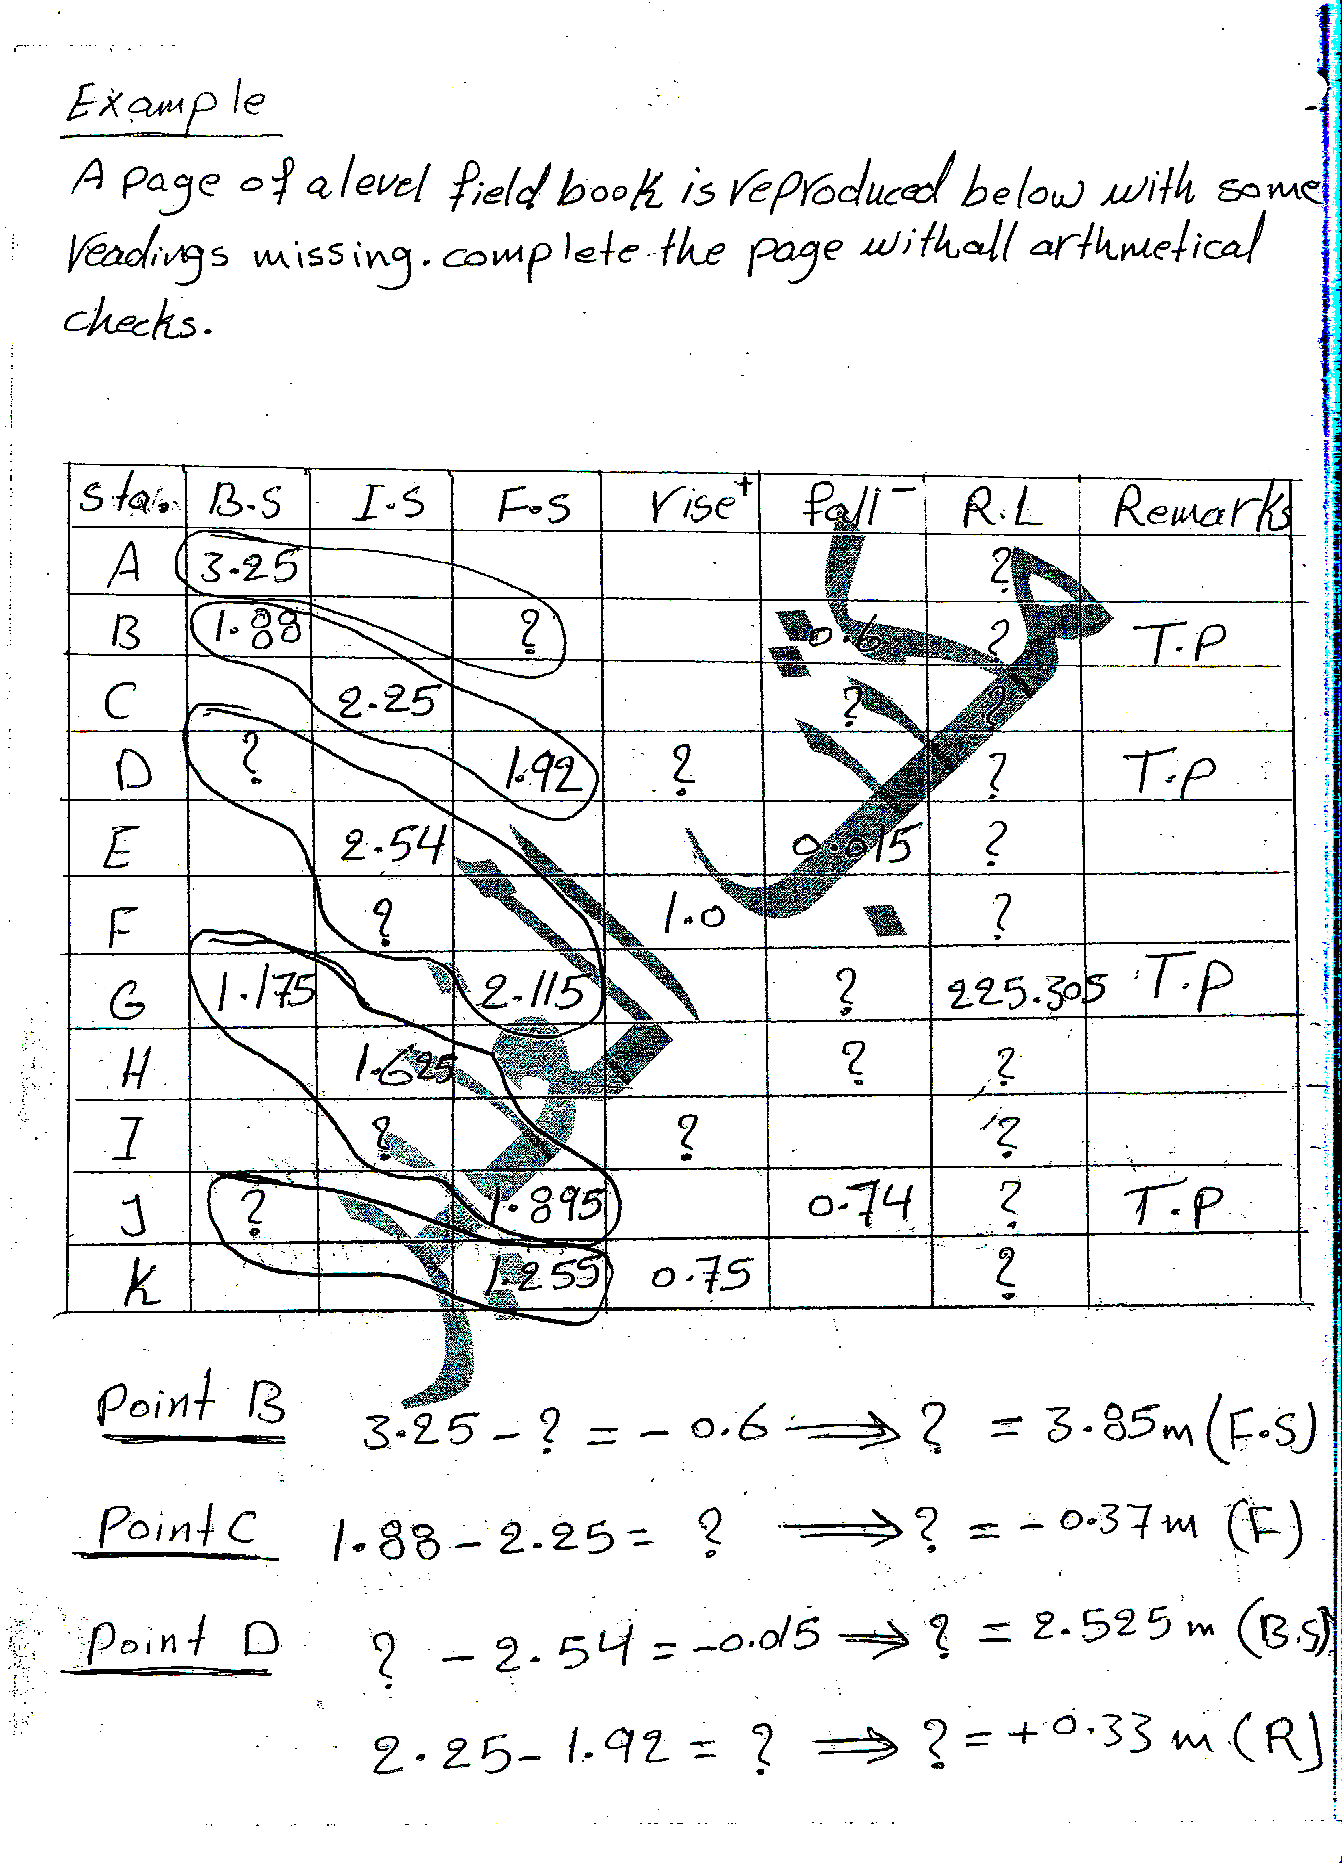 Example
A page of a level field book is reproduced below with some
readings missing. complete the page with all arthmetical
checks.
Sta. B.S I.S F.S rise+ fall- R.L Remarks
A 3.25 ?
B 1.88 ? 0.6 ? T.P
C 2.25 ? ?
D ? 1.92 ? ? T.P
E 2.54 0.015 ?
F ? 1.0 ?
G 1.175 2.115 ? 225.305 T.P
H 1.625 ? ?
I ? ? ?
J ? 1.895 0.74 ? T.P
K 1.255 0.75 ?
Point B 3.25 - ? = - 0.6 ⟹ ? = 3.85m (F.S)
Point C 1.88 - 2.25 = ? ⟹ ? = - 0.37m (F)
Point D ? - 2.54 = -0.015 ⟹ ? = 2.525m (B.S)
2.25 - 1.92 = ? ⟹ ? = +0.33 m (R)